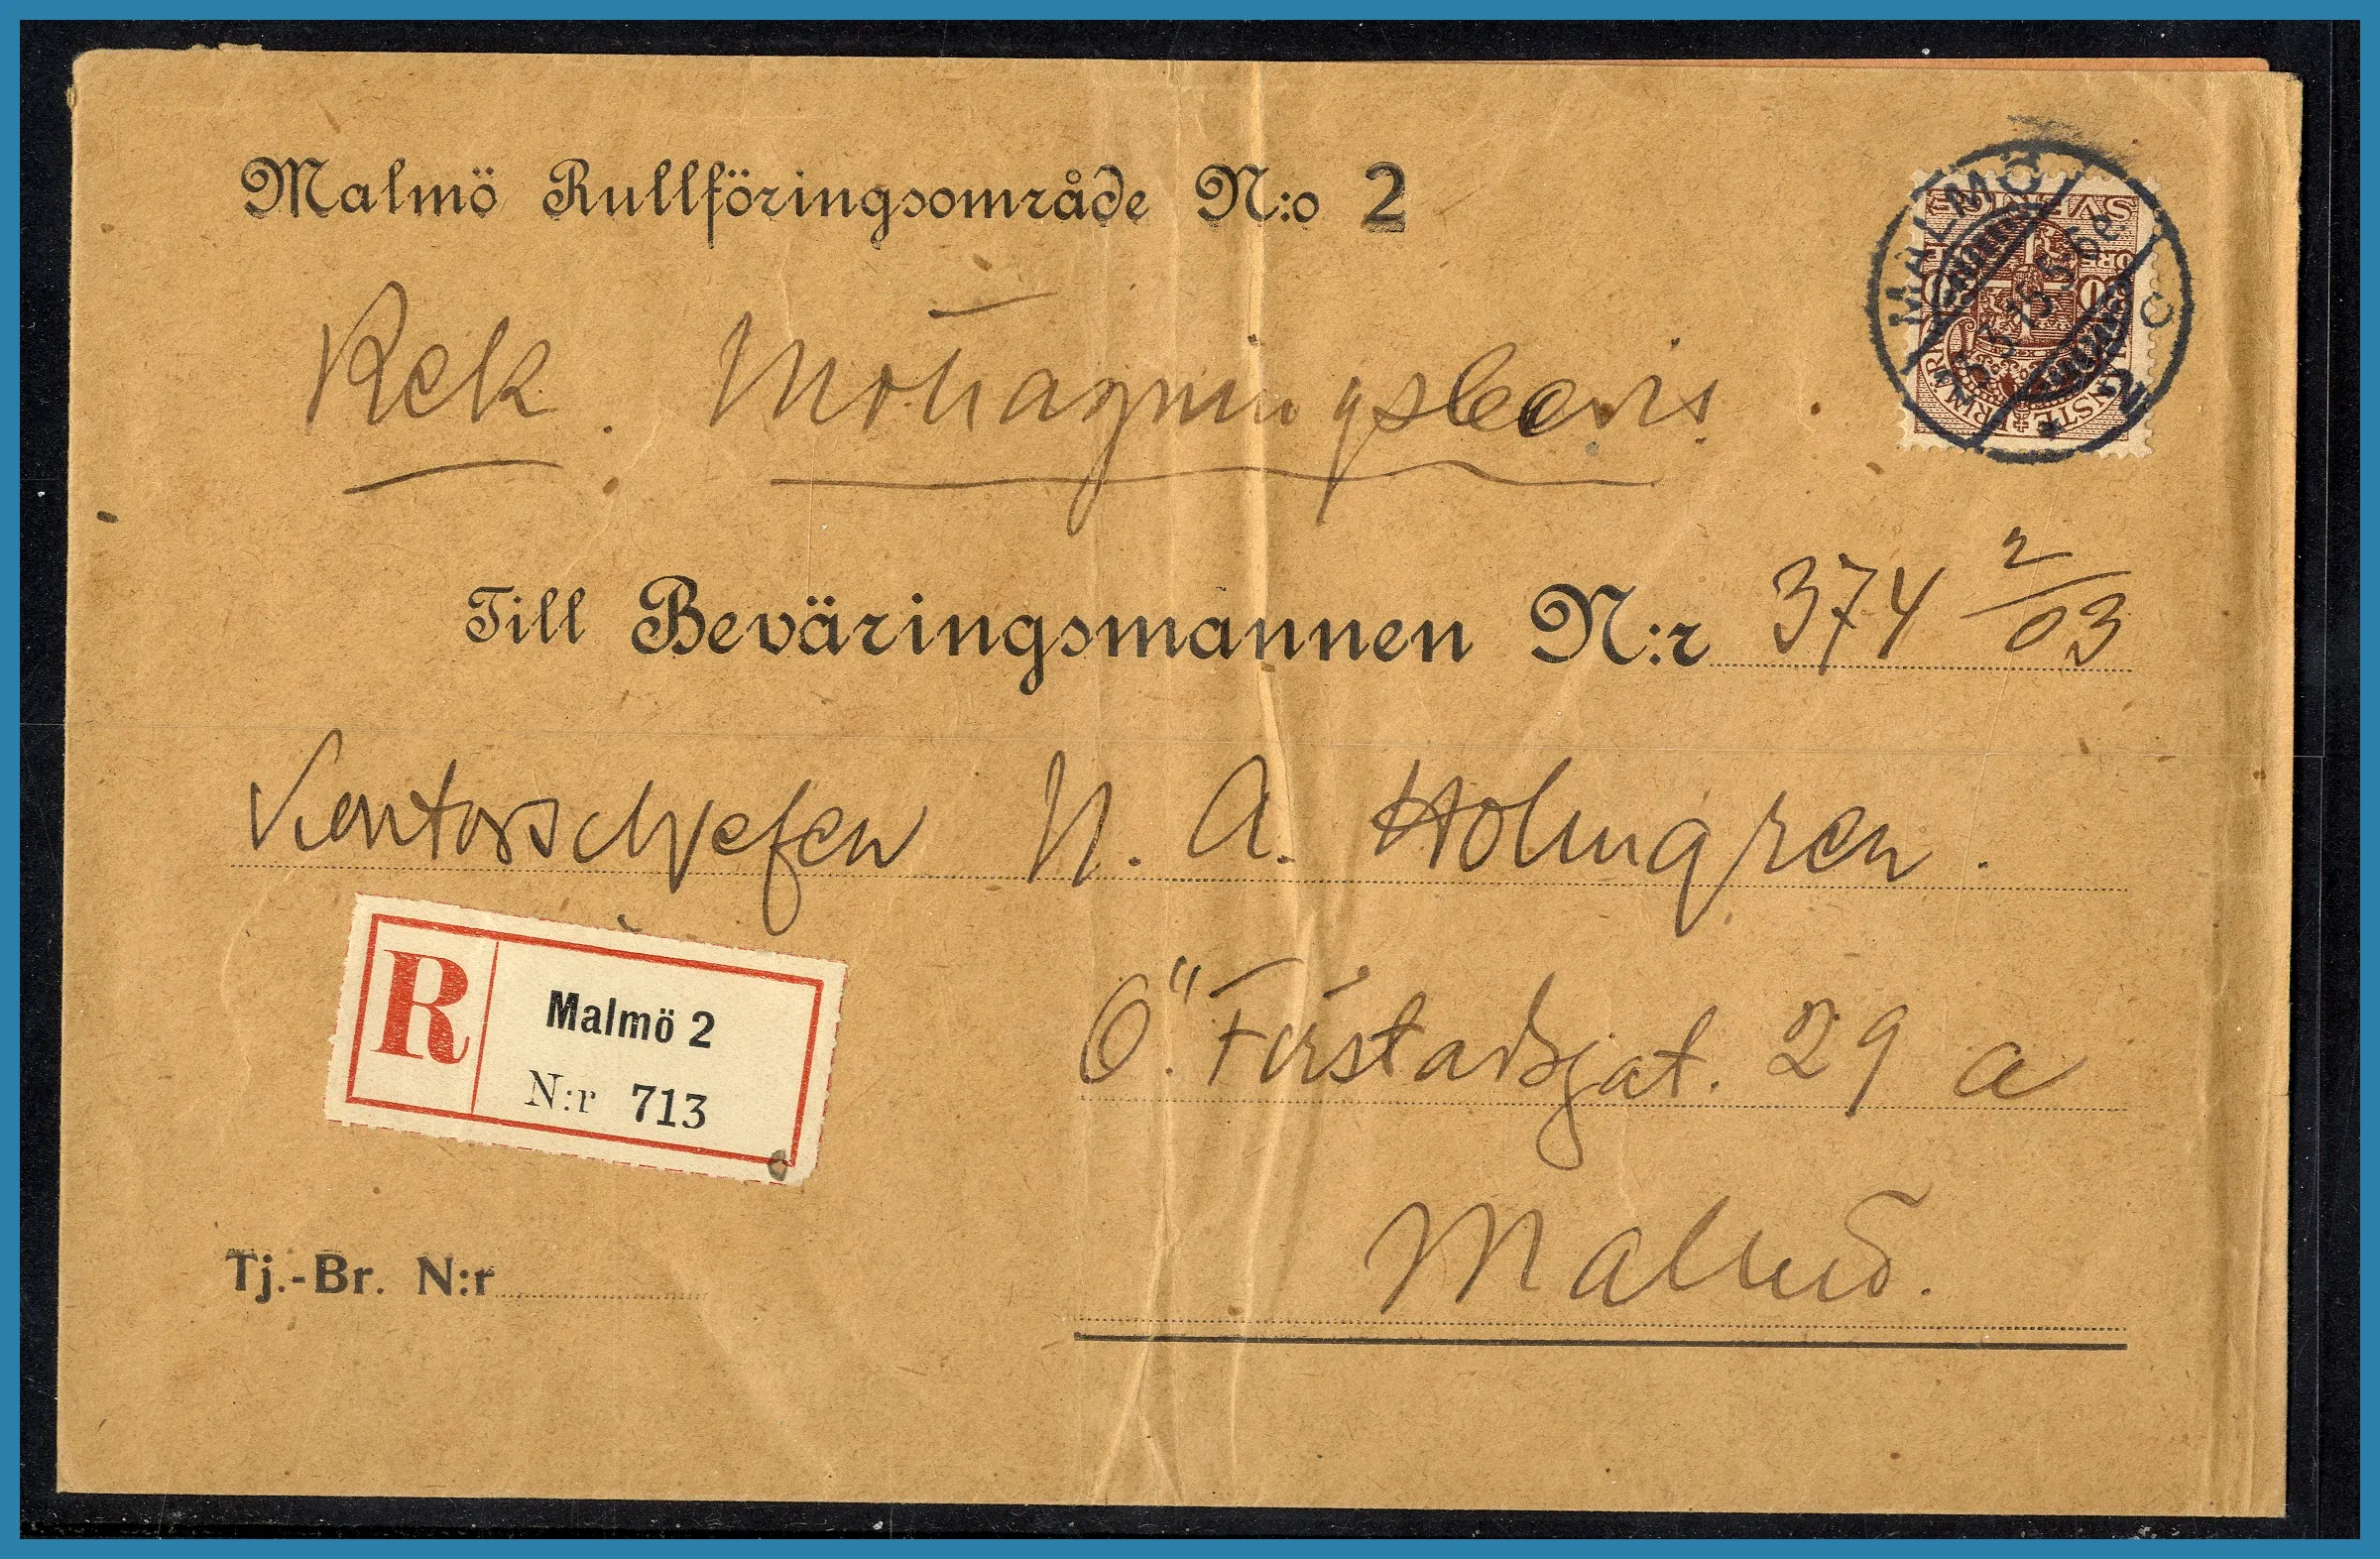 Malmö Rullföringsområde N:o 2
MALMÖ 2 C
SVERIGE
Rek. Mottagningsbevis
Till Beväringsmannen N:r 374 2/03
Kontorschefen N. A. Holmgren.
R Malmö 2
N:r 713
Ö. Förstadsgat. 29 a
Malmö.
Tj.-Br. N:r